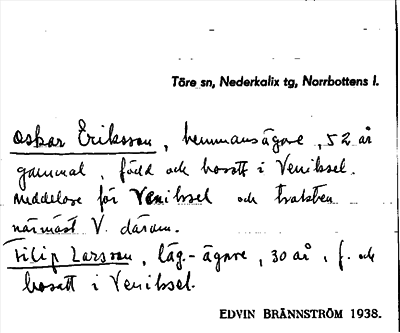 Töre sn, Nederkalix tg, Norrbottens l.
Oskar Eriksson, hemmansägare, 52 år
gammal, född och bosatt i Venibsel.
Meddelare för Venibsel och trakten
närmast V. därom.
Filip Larsson, läg.-ägare, 30 år, f. och
bosatt i Venibsel.
EDVIN BRÄNNSTRÖM 1938.